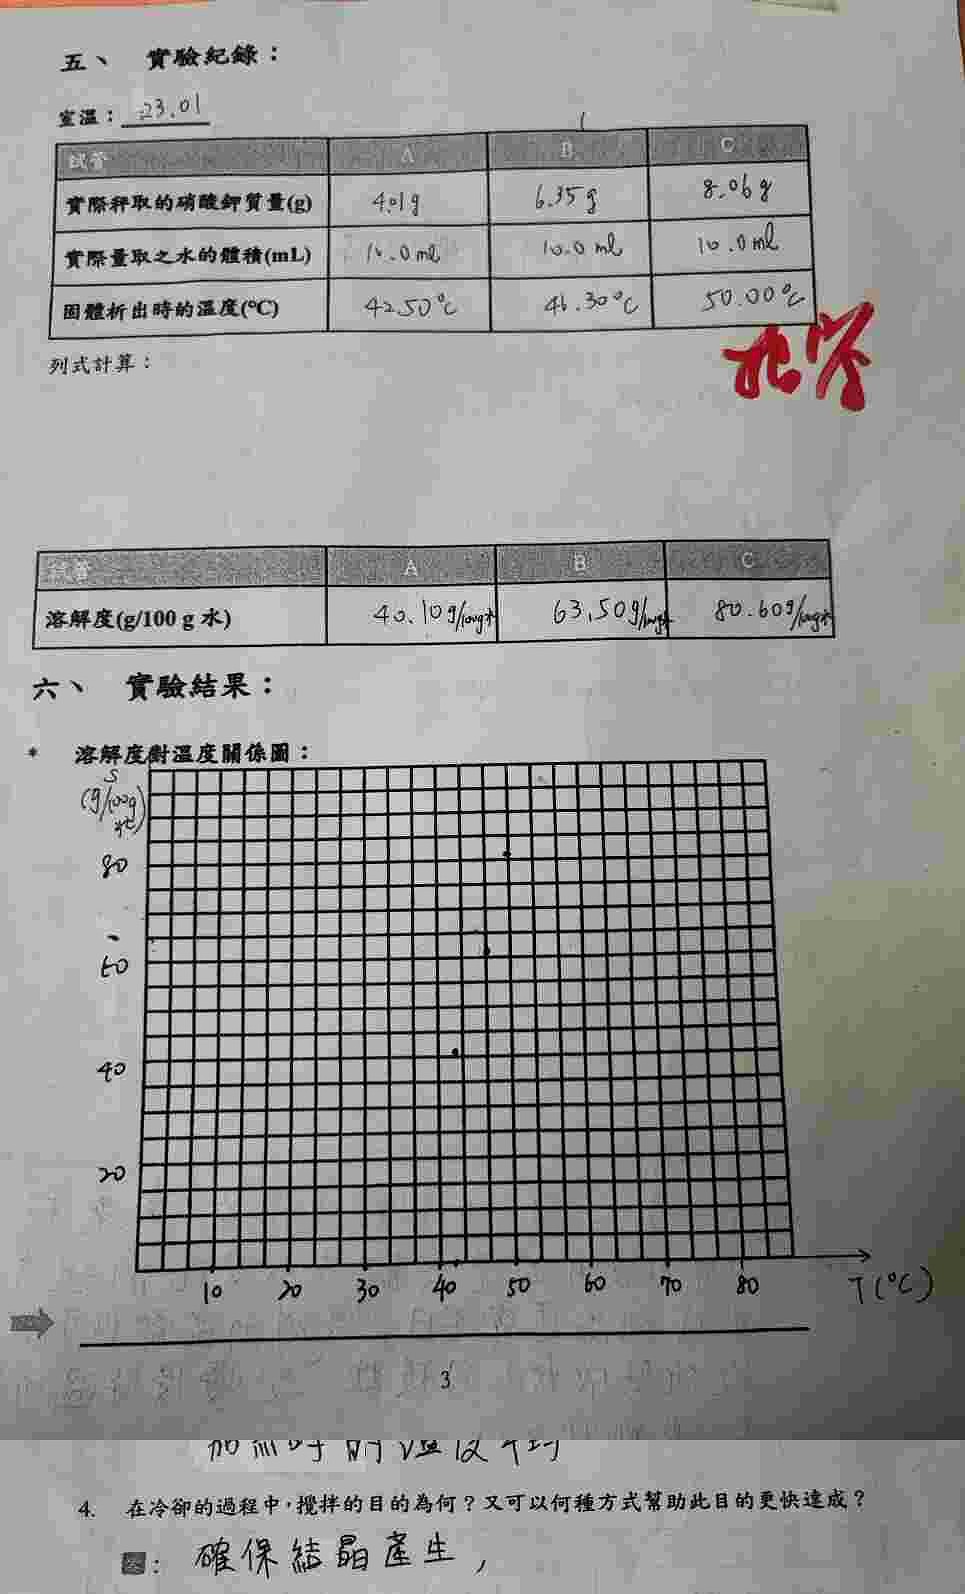 五、 實驗紀錄：
室溫： 23.01
試管 A B C
實際秤取的硝酸鉀質量(g) 4.01g 6.35g 8.06g
實際量取之水的體積(mL) 10.0ml 10.0ml 10.0ml
固體析出時的溫度(℃) 42.50℃ 46.30℃ 50.00℃
列式計算：
試管 A B C
溶解度(g/100 g 水) 40.10g/100g水 63.50g/100g水 80.60g/100g水
六、 實驗結果：
* 溶解度對溫度關係圖：
S
(g/100g
水)
80
60
40
20
10 20 30 40 50 60 70 80 T(℃)
3
4. 在冷卻的過程中，攪拌的目的為何？又可以何種方式幫助此目的更快達成？
答： 確保結晶產生，